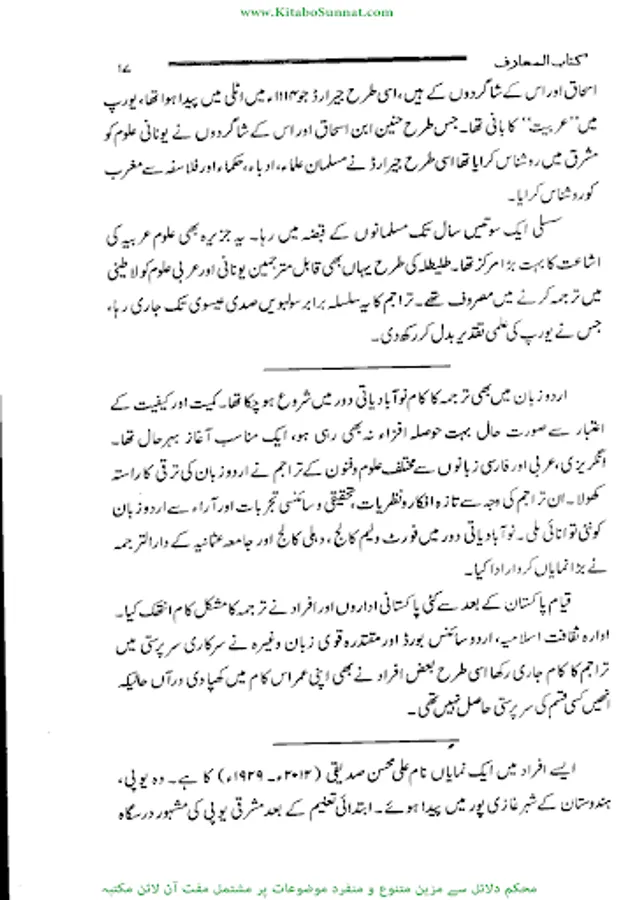 www.KitaboSunnat.com
کتاب المعارف
۱۷
اسحاق اور اس کے شاگردوں کے ہیں، اسی طرح جیرارڈ جو ۱۱۱۴ء میں اٹلی میں پیدا ہوا تھا، یورپ
میں ”عربیت“ کا بانی تھا۔ جس طرح حنین ابن اسحاق اور اس کے شاگردوں نے یونانی علوم کو
مشرق میں روشناس کرایا تھا اسی طرح جیرارڈ نے مسلمان علماء، ادباء، حکماء اور فلاسفہ سے مغرب
کو روشناس کرایا۔
سسلی ایک سو تیس سال تک مسلمانوں کے قبضہ میں رہا۔ یہ جزیرہ بھی علوم عربیہ کی
اشاعت کا بہت بڑا مرکز تھا۔ طلیطلہ کی طرح یہاں بھی قابل مترجمین یونانی اور عربی علوم کو لاطینی
میں ترجمہ کرنے میں مصروف تھے۔ تراجم کا یہ سلسلہ برابر سولہویں صدی عیسوی تک جاری رہا،
جس نے یورپ کی علمی تقدیر بدل کر رکھ دی۔
اردو زبان میں بھی ترجمہ کا کام نوآبادیاتی دور میں شروع ہو چکا تھا۔ کمیت اور کیفیت کے
اعتبار سے صورت حال بہت حوصلہ افزاء نہ بھی رہی ہو، ایک مناسب آغاز بہرحال تھا۔
انگریزی، عربی اور فارسی زبانوں سے مختلف علوم و فنون کے تراجم نے اردو زبان کی ترقی کا راستہ
کھولا۔ ان تراجم کی وجہ سے تازہ افکار و نظریات، تحقیقی و سائنسی تجربات اور آراء سے اردو زبان
کو نئی توانائی ملی۔ نوآبادیاتی دور میں فورٹ ولیم کالج، دہلی کالج اور جامعہ عثمانیہ کے دارالترجمہ
نے بڑا نمایاں کردار ادا کیا۔
قیام پاکستان کے بعد سے کئی پاکستانی اداروں اور افراد نے ترجمہ کا مشکل کام انتھک کیا۔
ادارہ ثقافت اسلامیہ، اردو سائنس بورڈ اور مقتدرہ قومی زبان وغیرہ نے سرکاری سرپرستی میں
تراجم کا کام جاری رکھا اسی طرح بعض افراد نے بھی اپنی عمر اس کام میں کھپا دی درآں حالیکہ
انھیں کسی قسم کی سرپرستی حاصل نہیں تھی۔
ایسے افراد میں ایک نمایاں نام علی محسن صدیقی (۲۰۱۲ء۔۱۹۲۹ء) کا ہے۔ وہ یو پی،
ہندوستان کے شہر غازی پور میں پیدا ہوئے۔ ابتدائی تعلیم کے بعد مشرقی یو پی کی مشہور درسگاہ
محکم دلائل سے مزین متنوع و منفرد موضوعات پر مشتمل مفت آن لائن مکتبہ